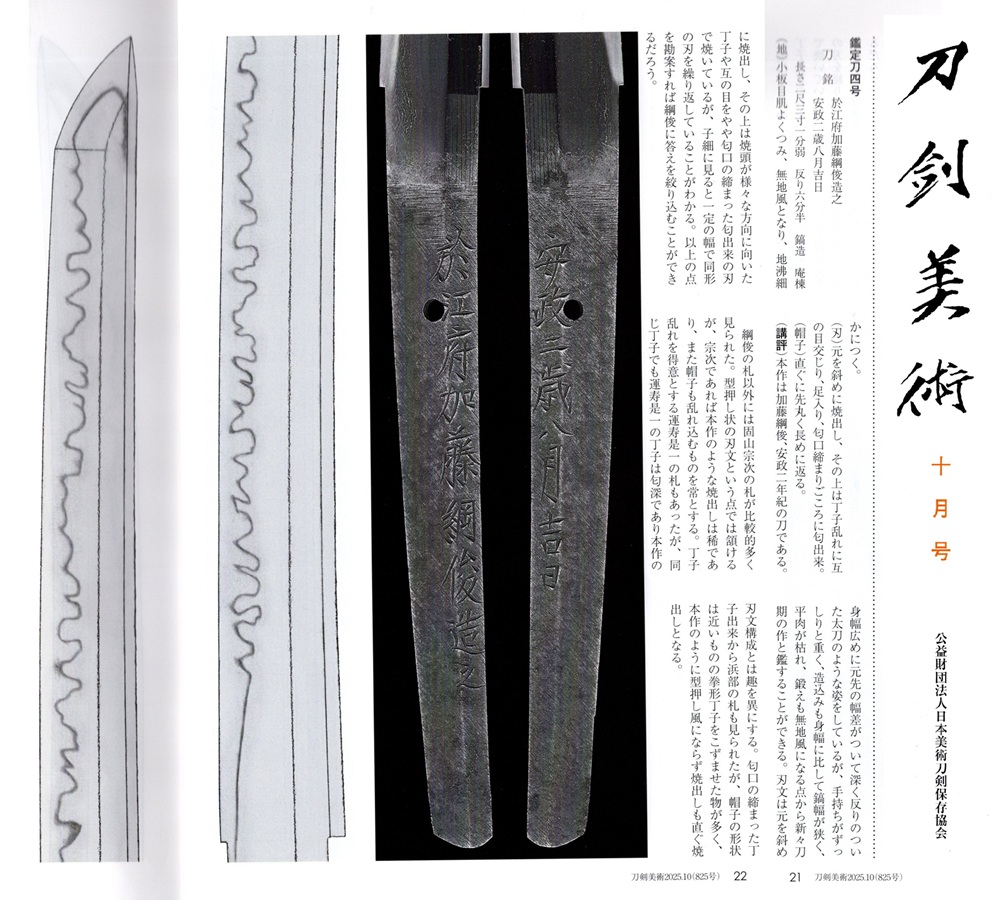 刀剣美術
十月号
公益財団法人日本美術刀剣保存協会
鑑定刀四号
刀 銘 於江府加藤綱俊造之
安政二歳八月吉日
長さ二尺三寸一分弱 反り六分半 鎬造 庵棟
(地)小板目肌よくつみ、無地風となり、地沸細
かにつく。
(刃)元を斜めに焼出し、その上は丁子乱れに互
の目交じり、足入り、匂口締まりごころに匂出来。
(帽子)直ぐに先丸く長めに返る。
(講評)本作は加藤綱俊、安政二年紀の刀である。
身幅広めに元先の幅差がついて深く反りのつい
た太刀のような姿をしているが、手持ちがずっ
しりと重く、造込みも身幅に比して鎬幅が狭く、
平肉が枯れ、鍛えも無地風になる点から新々刀
期の作と鑑することができる。刃文は元を斜め
に焼出し、その上は焼頭が様々な方向に向いた
丁子や互の目をやや匂口の締まった匂出来の刃
で焼いているが、子細に見ると一定の幅で同形
の刃を繰り返していることがわかる。以上の点
を勘案すれば綱俊に答えを絞り込むことができ
るだろう。
綱俊の札以外には固山宗次の札が比較的多く
見られた。型押し状の刃文という点では頷ける
が、宗次であれば本作のような焼出しは稀であ
り、また帽子も乱れ込むものを常とする。丁子
乱れを得意とする運寿是一の札もあったが、同
じ丁子でも運寿是一の丁子は匂深であり本作の
刃文構成とは趣を異にする。匂口の締まった丁
子出来から浜部の札も見られたが、帽子の形状
は近いものの拳形丁子をこずませた物が多く、
本作のように型押し風にならず焼出しも直ぐ焼
出しとなる。
安政二歳八月吉日
於江府加藤綱俊造之
21 刀剣美術2025.10(825号)
刀剣美術2025.10(825号) 22